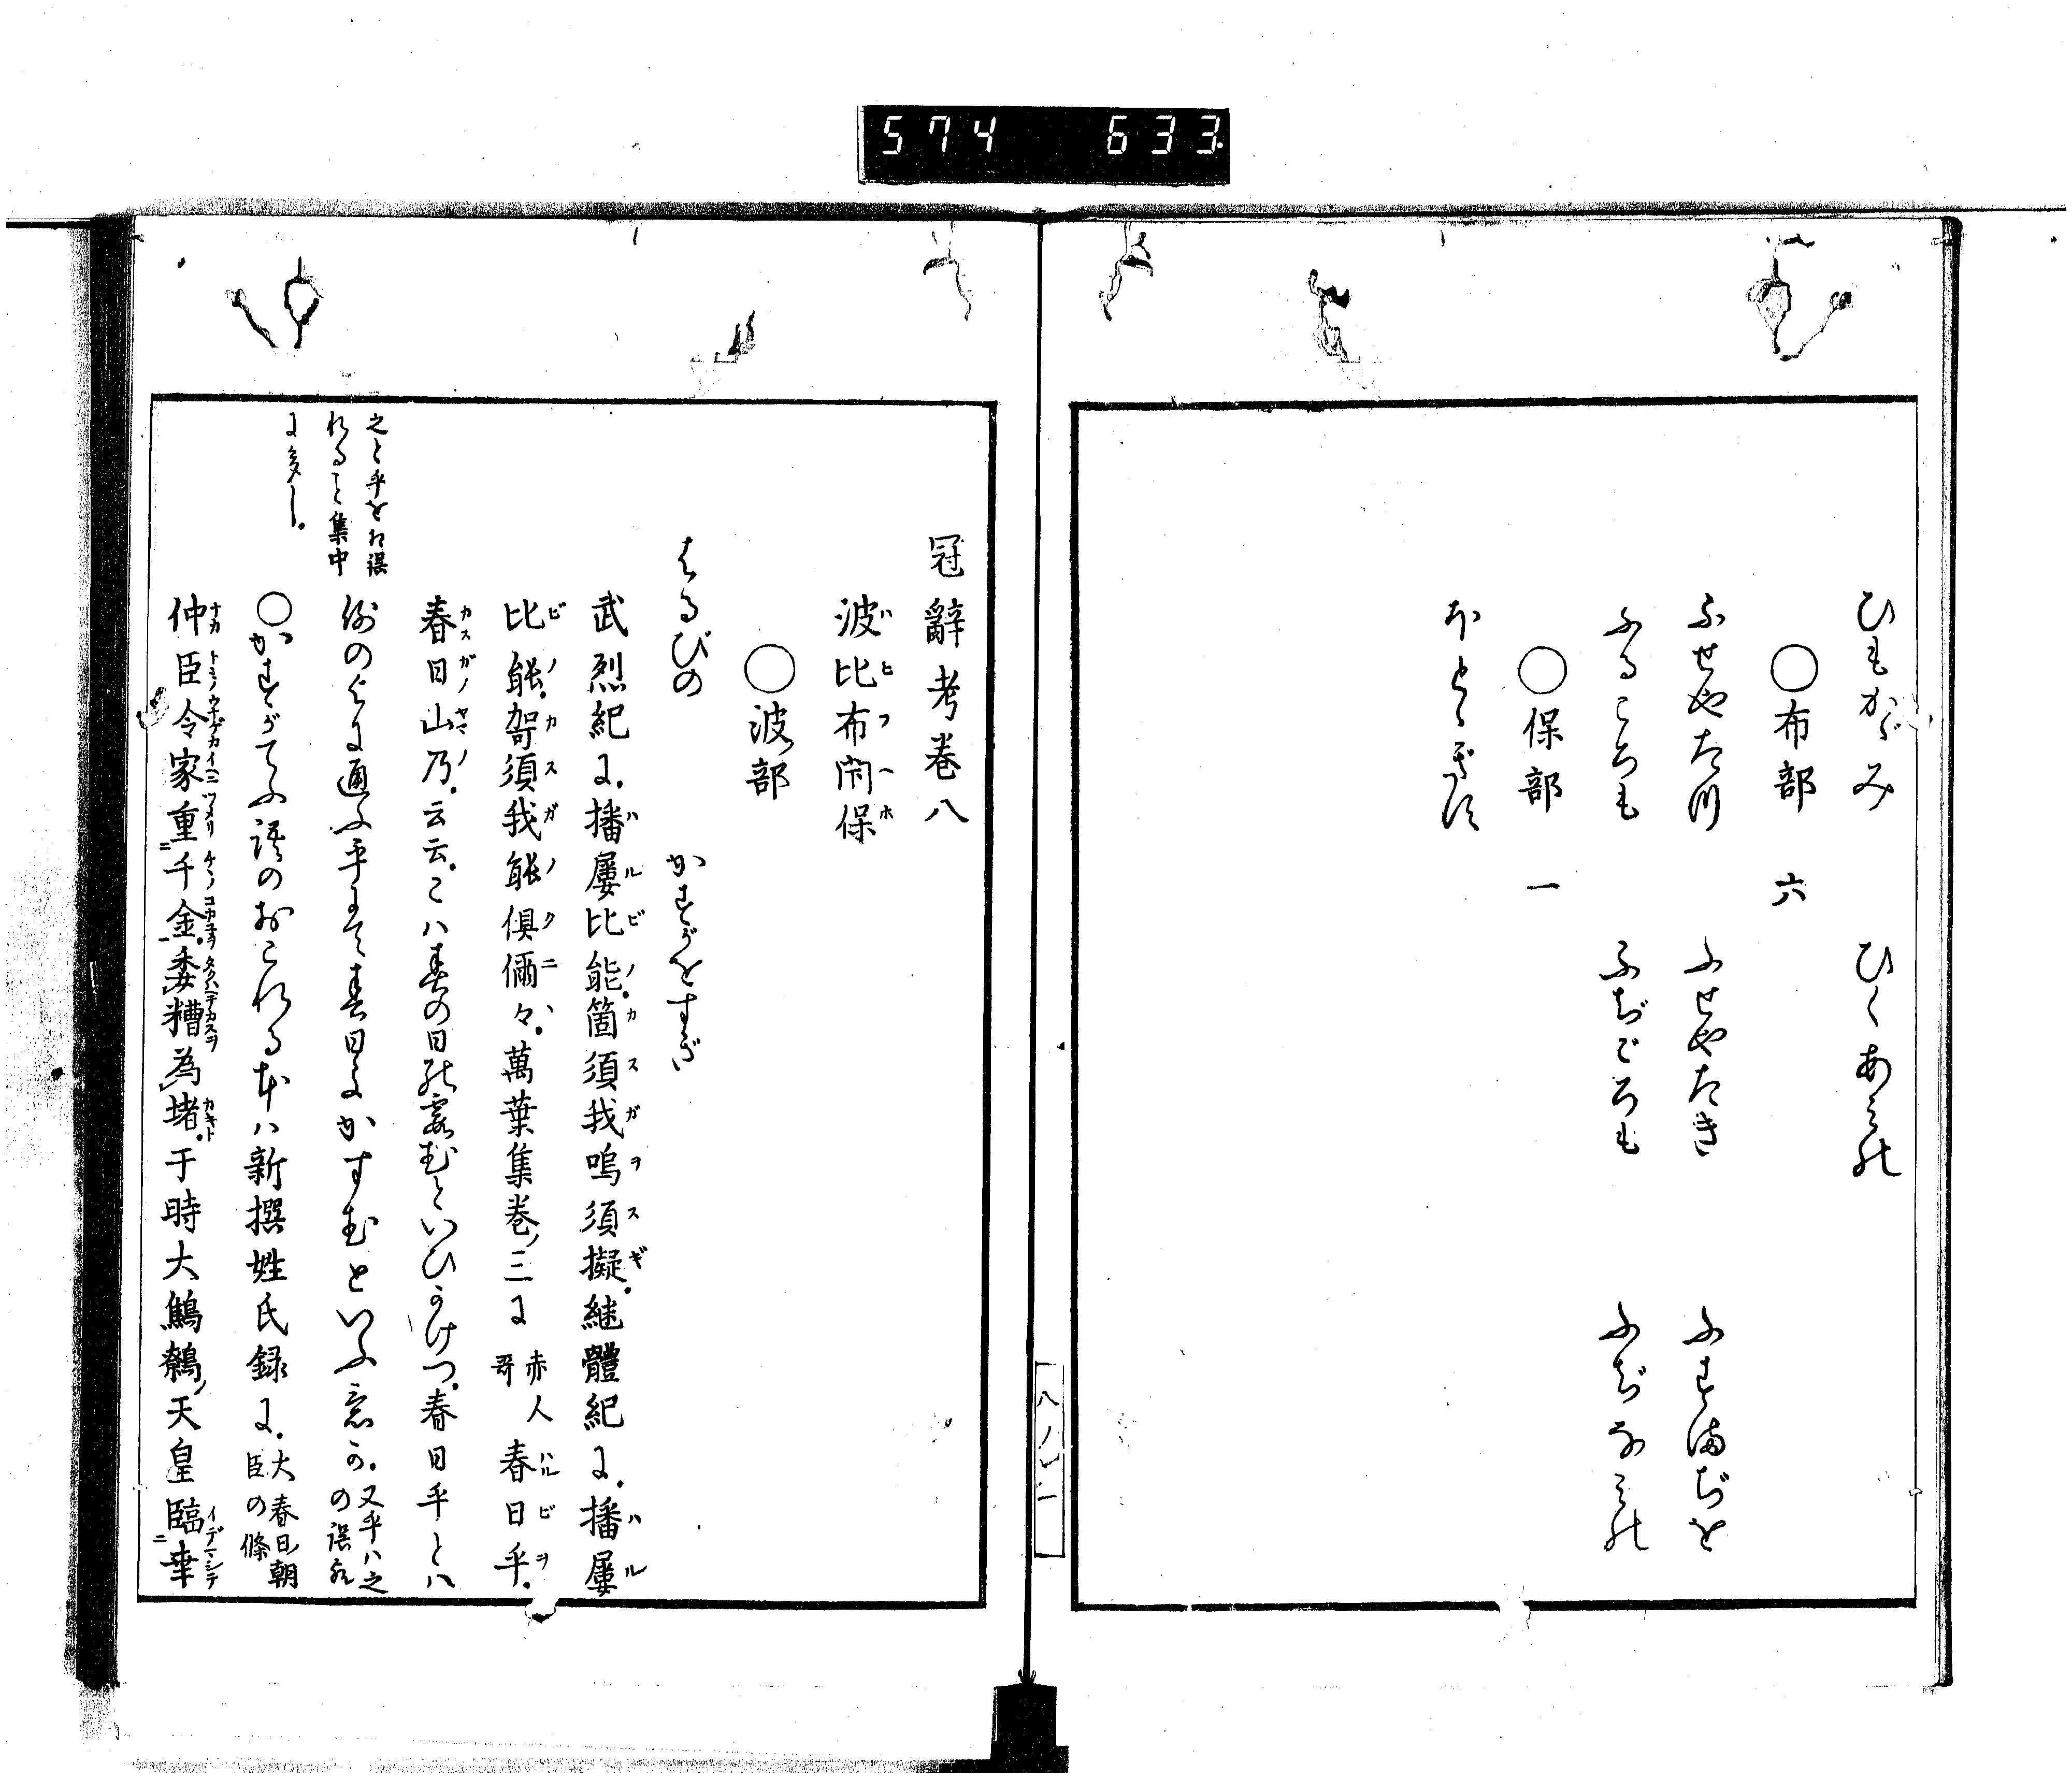 574 633
ひもかゞみ ひくあみの
○布部 六
ふせやた川 ふせやたき ふすまぢを
ふるころも ふぢごろも ふぢなみの
○保部 一
ほとゝぎす
八ノ一
冠辭考卷八
波比布閇保
○波部
はるびの かすがをすぎ
武烈紀に.播屢比能.箇須我嗚須擬.継體紀に.播屢
比能.哿須我能倶儞々.萬葉集卷ノ三に 赤人哥 春日乎.
春日山乃.云云.こハ春の日の霞むといひかけつ.春日乎とハ
例のよに通ふ乎にて春日よかすむといふ意か.又乎ハ之の誤か
○かすがてふ語のおこれる本ハ新撰姓氏録に.大春日ノ朝臣の條
仲臣令家重千金.委糟為堵.于時大鷦鷯ノ天皇臨幸
之と乎を相誤
れること集中
に多し.